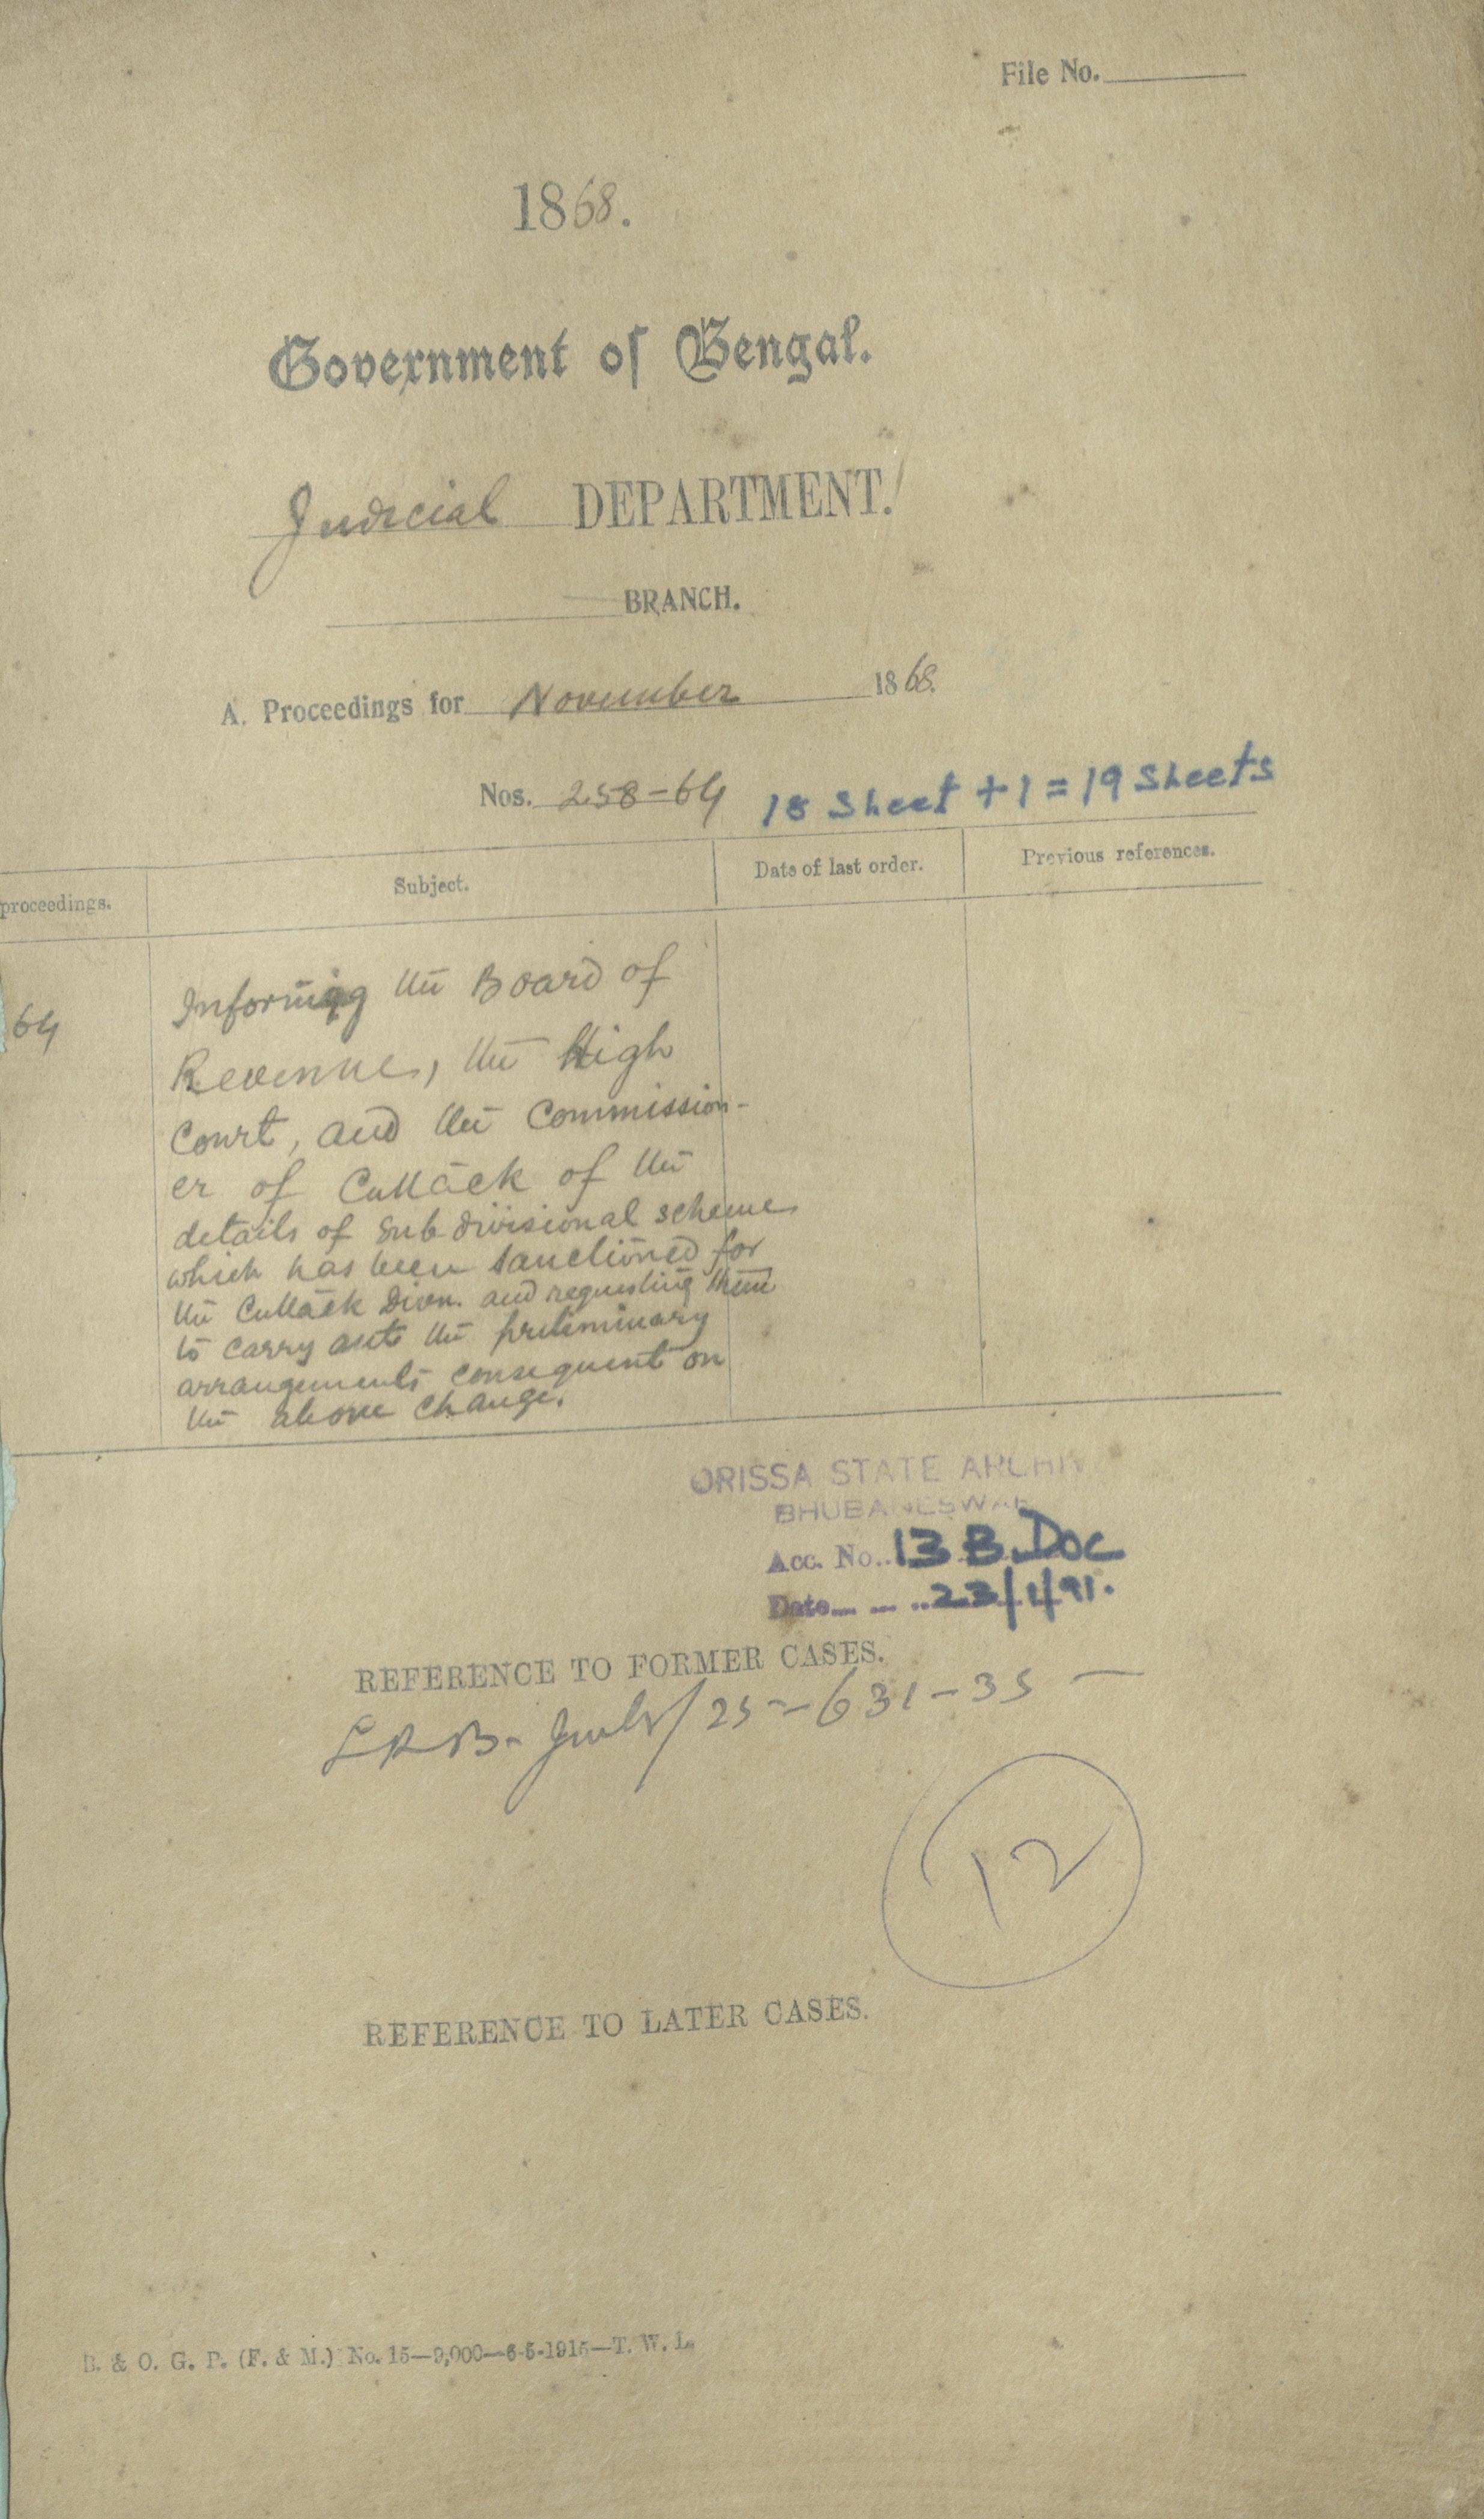 File No.
1868.
Government of Bengal.
Judicial DEPARTMENT.
BRANCH.
A. Proceedings for November 1868.
Nos. 258-64 18 Sheet + 1 = 19 Sheets
proceedings. Subject. Date of last order. Previous references.
64
Informing the Board of
Revenue, the High
Court, and the Commission-
er of Cuttack of the
details of Sub divisional scheme
which has been sanctioned for
the Cuttack Divn. and requesting them
to carry out the preliminary
arrangements consequent on
the above change.
ORISSA STATE ARCHIV
BHUBANESWAR
Acc. No. 13 B. Doc
Date 23/1/91.
REFERENCE TO FORMER CASES.
631-35
12
REFERENCE TO LATER CASES.
B. & O. G. P. (F. & M.) No. 15—9,000—6-5-1915—T. W. L.